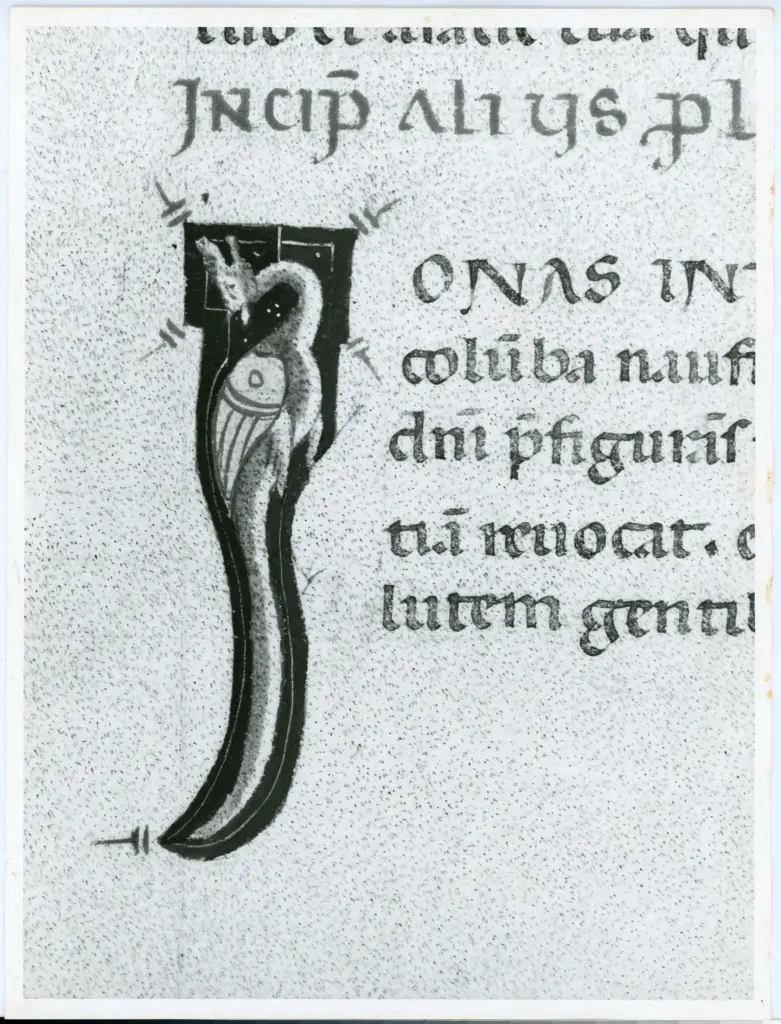 INCIP̄ ALIUS P̱L
IONAS IN
colūba naufr
dnī p̄figurās
tiā reuocat. e
lutem gentil